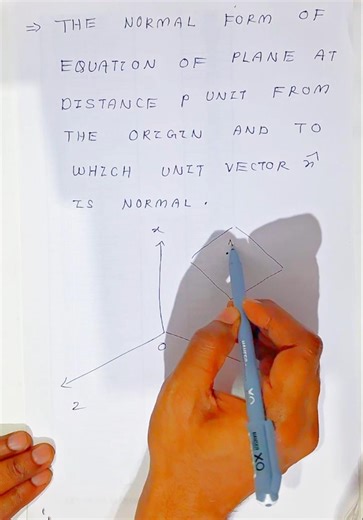 ⇒ THE NORMAL FORM OF
EQUATION OF PLANE AT
DISTANCE P UNIT FROM
THE ORIGIN AND TO
WHICH UNIT VECTOR n̂
IS NORMAL.
x
O
Z
XO